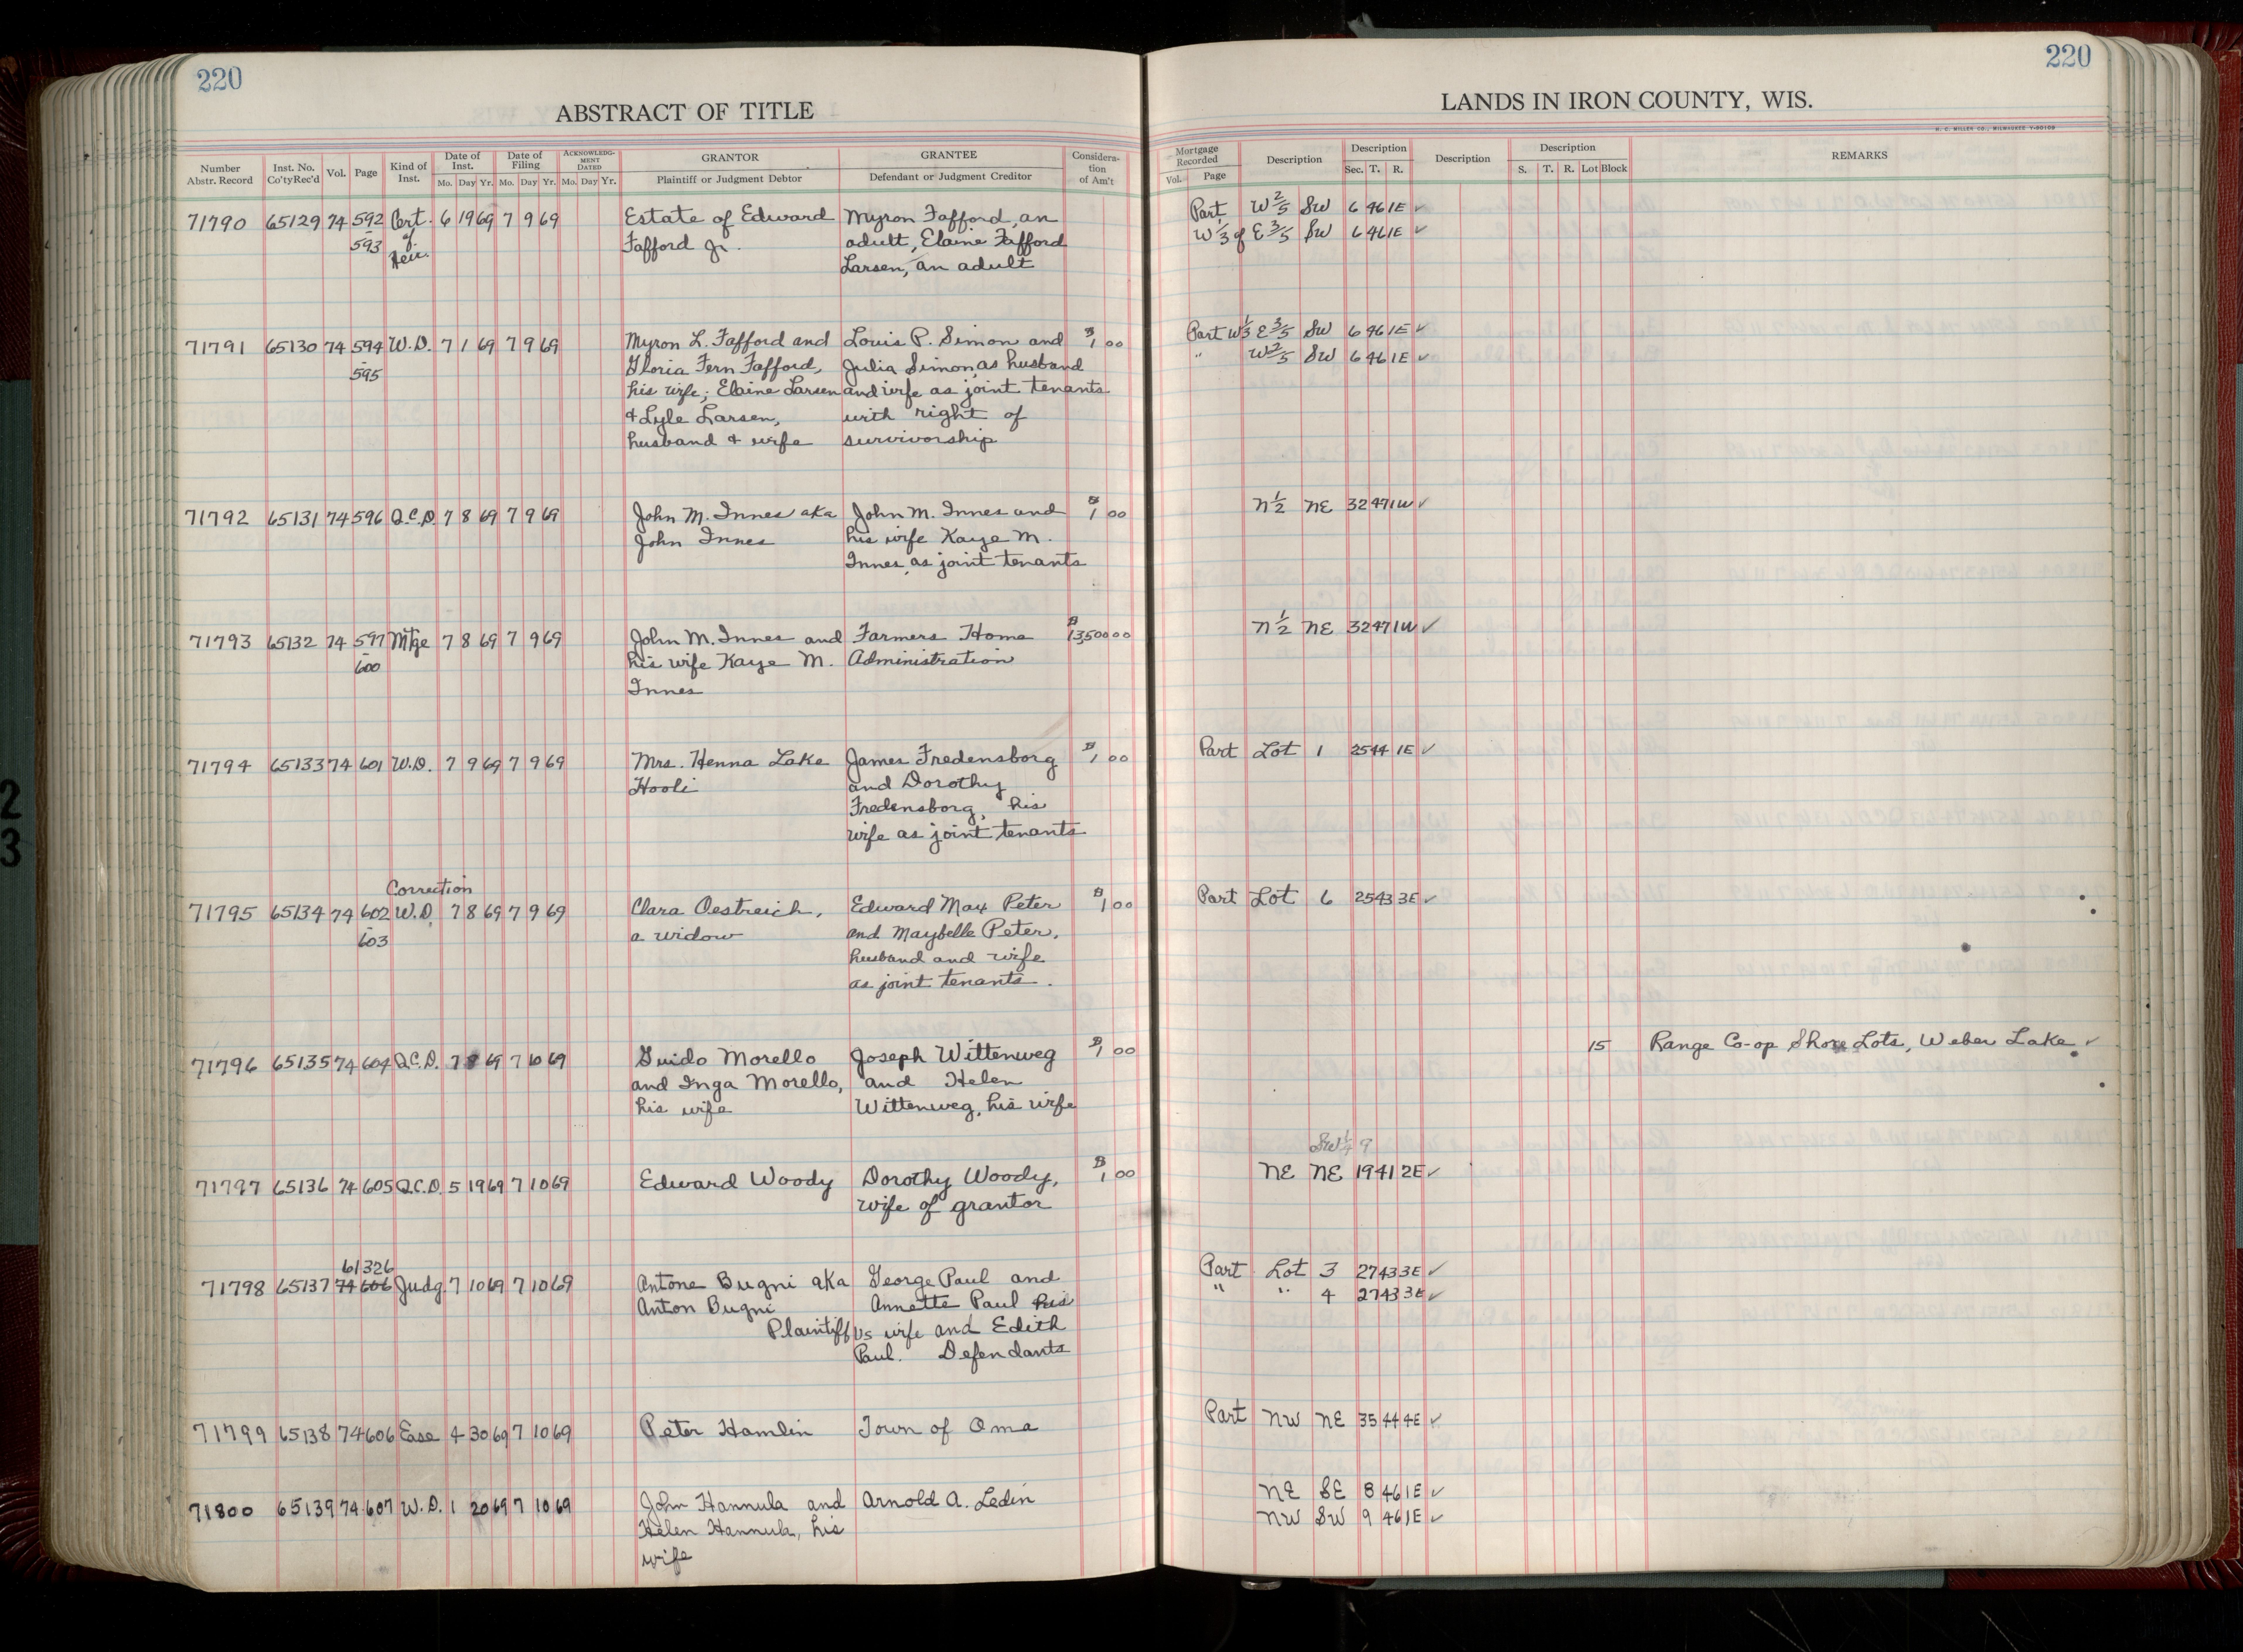 220
220
ABSTRACT OF TITLE
LANDS IN IRON COUNTY, WIS.
H. C. MILLER CO., MILWAUKEE Y-90109
Number Abstr. Record | Inst. No. Co'ty Rec'd | Vol. | Page | Kind of Inst. | Date of Inst. Mo. Day Yr. | Date of Filing Mo. Day Yr. | ACKNOWLEDGMENT DATED Mo. Day Yr. | GRANTOR Plaintiff or Judgment Debtor | GRANTEE Defendant or Judgment Creditor | Consideration of Am't | Mortgage Recorded Vol. Page | Description | Description Sec. T. R. | Description | Description S. T. R. Lot Block | REMARKS
71790 65129 74 592 Cert. 6 19 69 7 9 69 Estate of Edward Myron Fafford, an Part W 2/5 SW 6 46 1E ✓
- 593 of Heir. Fafford Jr. adult, Elaine Fafford W 1/3 of E 3/5 SW 6 46 1E ✓
Larsen, an adult
71791 65130 74 594 W.D. 7 1 69 7 9 69 Myron L. Fafford and Louis P. Simon and $1 00 Part W 1/3 E 3/5 SW 6 46 1E ✓
- 595 Gloria Fern Fafford, Julia Simon, as husband " W 2/5 SW 6 46 1E ✓
his wife; Elaine Larsen and wife as joint tenants
& Lyle Larsen, with right of
husband & wife survivorship
71792 65131 74 596 Q.C.D. 7 8 69 7 9 69 John M. Innes aka John M. Innes and $1 00 N 1/2 NE 32 47 1W ✓
John Innes his wife Kaye M.
Innes, as joint tenants
71793 65132 74 597 Mtge 7 8 69 7 9 69 John M. Innes and Farmers Home $13,500 00 N 1/2 NE 32 47 1W ✓
- 600 his wife Kaye M. Administration
Innes
71794 65133 74 601 W.D. 7 9 69 7 9 69 Mrs. Henna Lake James Fredensborg $1 00 Part Lot 1 25 44 1E ✓
Hooli and Dorothy
Fredensborg, his
wife as joint tenants
Correction
71795 65134 74 602 W.D. 7 8 69 7 9 69 Clara Oestreich, Edward Max Peter $1 00 Part Lot 6 25 43 3E ✓
- 603 a widow and Maybelle Peter,
husband and wife
as joint tenants.
71796 65135 74 604 Q.C.D. 7 8 69 7 10 69 Guido Morello Joseph Wittenweg $1 00 15 Range Co-op Shore Lots, Weber Lake ✓
and Inga Morello, and Helen
his wife Wittenweg, his wife
SW 1/4 9
71797 65136 74 605 Q.C.D. 5 19 69 7 10 69 Edward Woody Dorothy Woody, $1 00 NE NE 19 41 2E ✓
wife of grantor
61 326
71798 65137 74 606 Judg. 7 10 69 7 10 69 Antone Bugni aka George Paul and Part Lot 3 27 43 3E ✓
Anton Bugni Annette Paul his " " 4 27 43 3E ✓
Plaintiff vs wife and Edith
Paul. Defendants
71799 65138 74 606 Ease 4 30 69 7 10 69 Peter Hamlin Town of Oma Part NW NE 35 44 4E ✓
71800 65139 74 607 W.D. 1 20 69 7 10 69 John Hannula and Arnold A. Ledin NE SE 8 46 1E ✓
Helen Hannula, his NW SW 9 46 1E ✓
wife
2
3